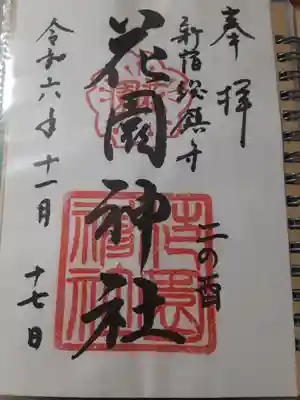 奉拝
新宿総鎮守
花園神社
二の酉
令和六年十一月十七日
花園神社